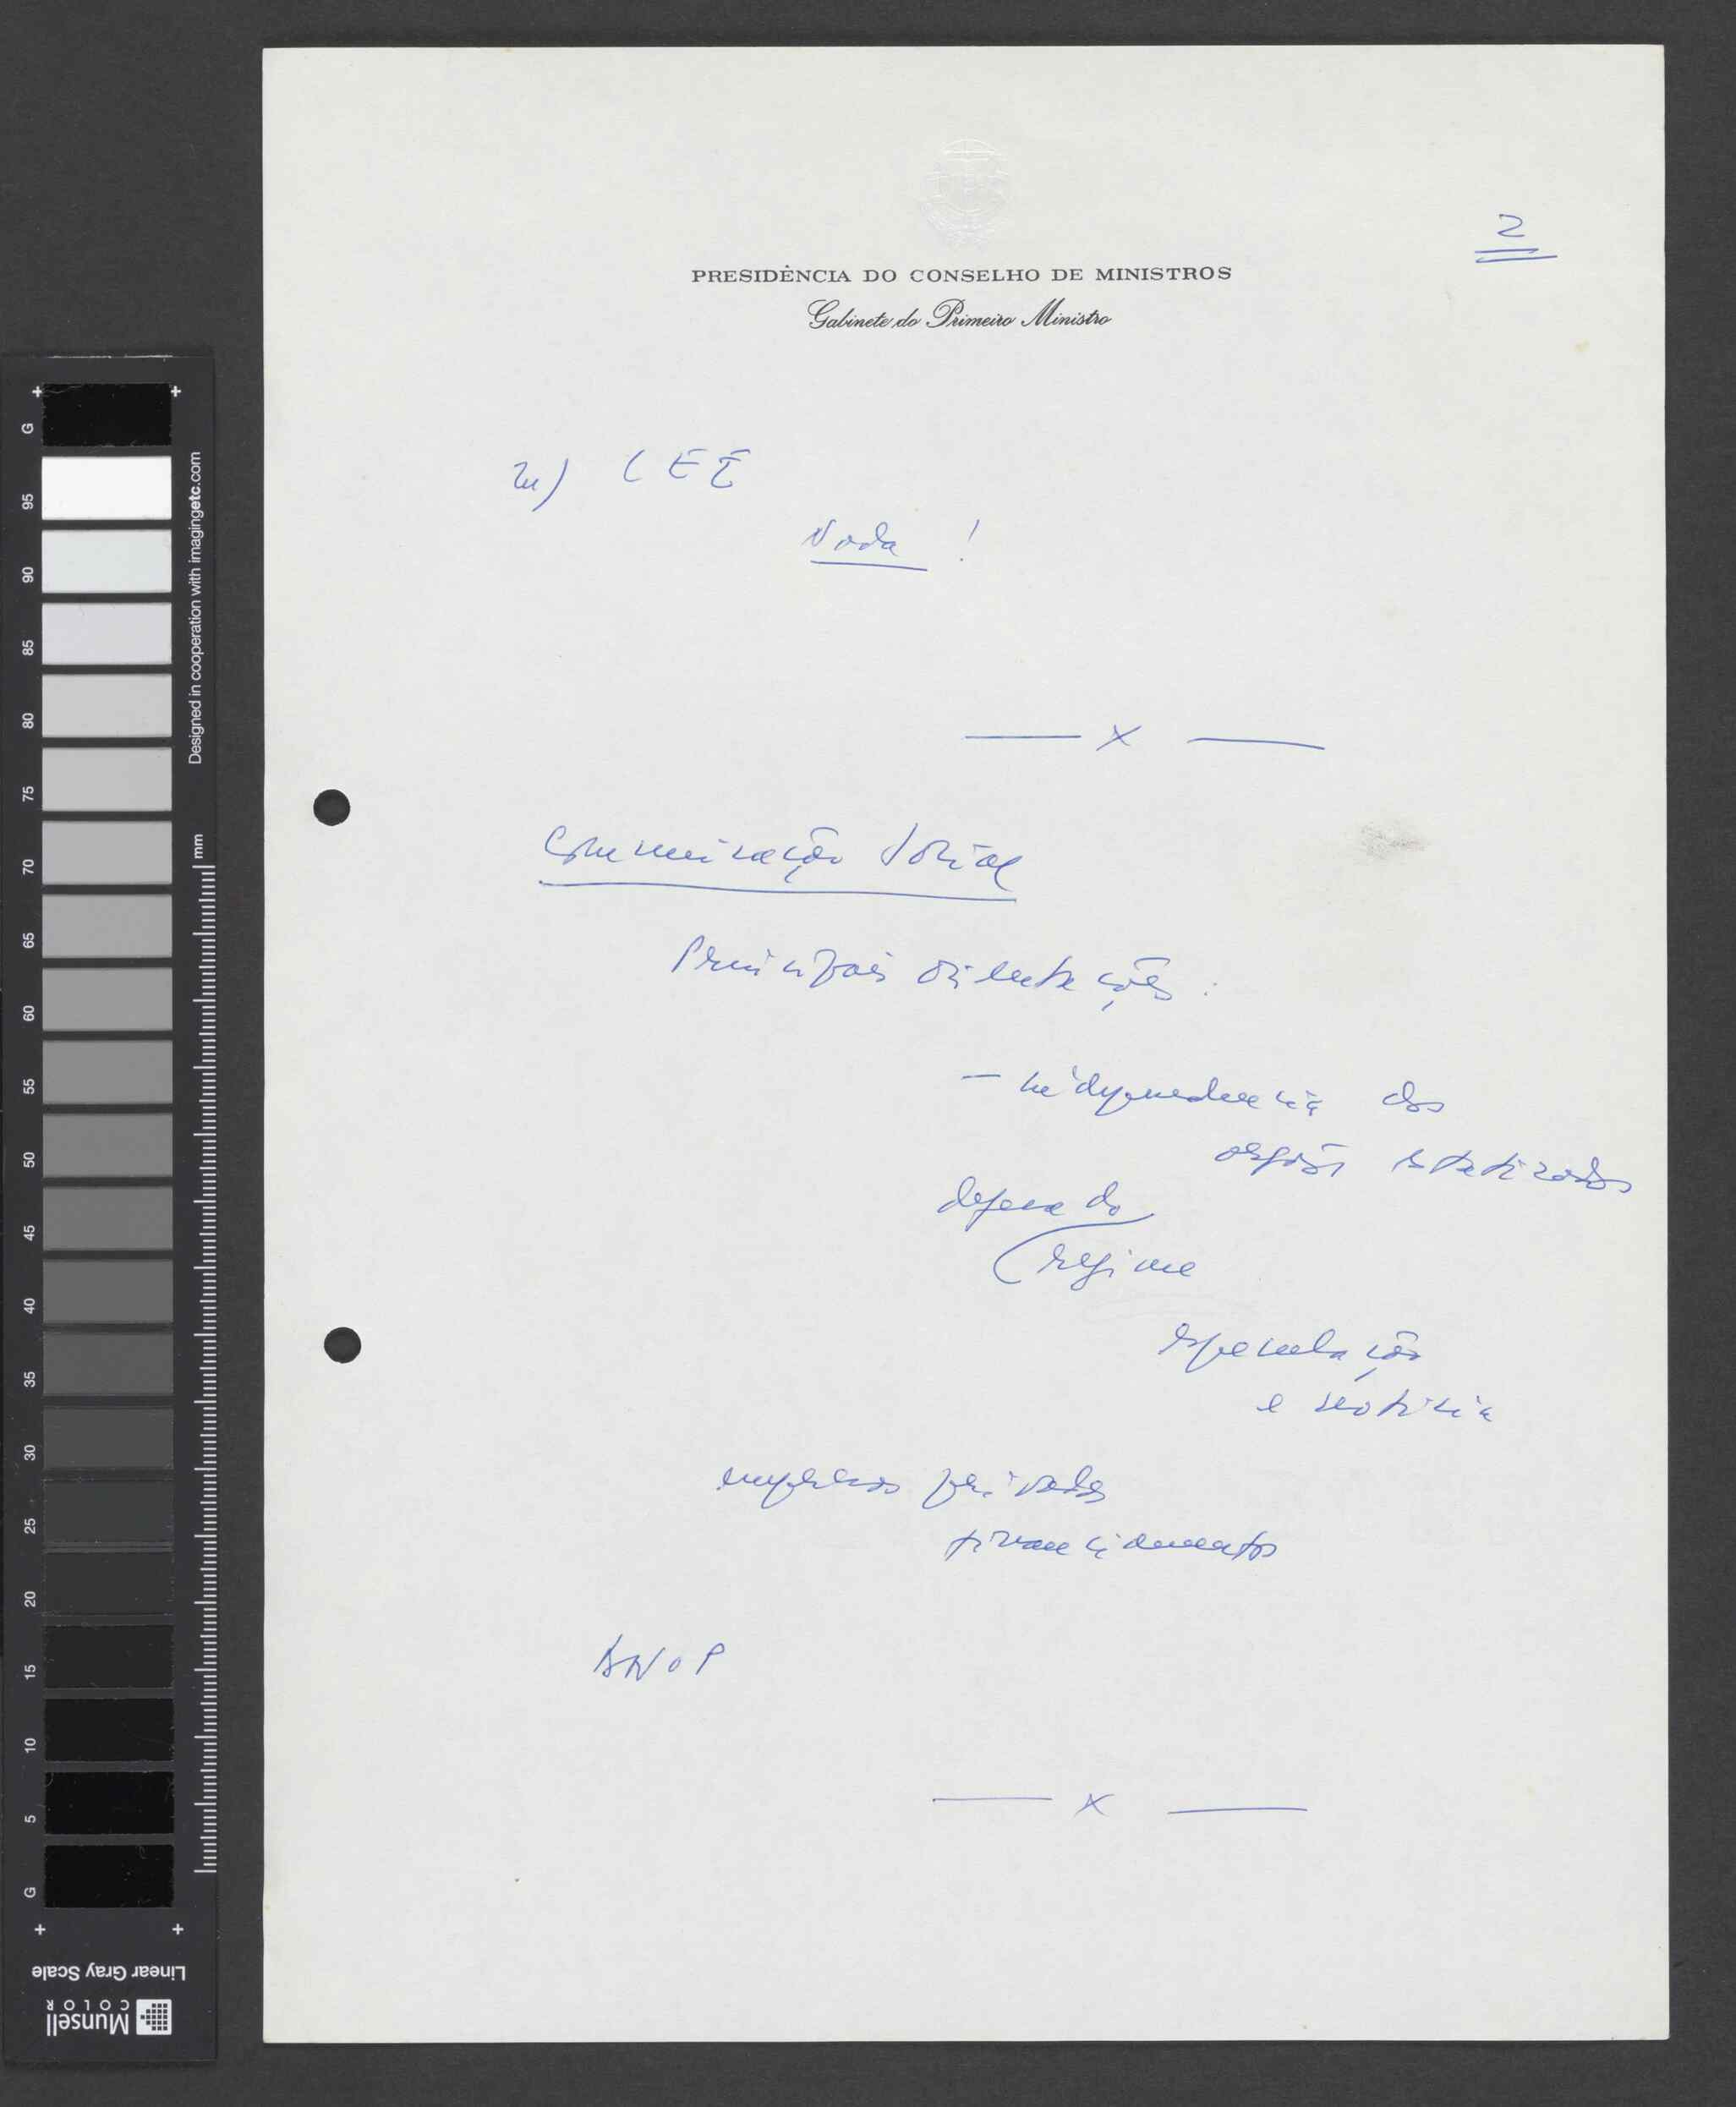 2
PRESIDÊNCIA DO CONSELHO DE MINISTROS
Gabinete do Primeiro Ministro
CEE
Nada !
— x —
Comunicação Social
Principais orientações :
— independencia dos
orgãos estatizados
defesa do
regime
especulação
e noticia
empresas privadas
financiamentos
ANOP
— x —
G
95
90
85
80
75
70
65
60
55
50
45
40
35
30
25
20
15
10
5
G
Designed in cooperation with imagingetc.com
mm
Linear Gray Scale
Munsell
COLOR